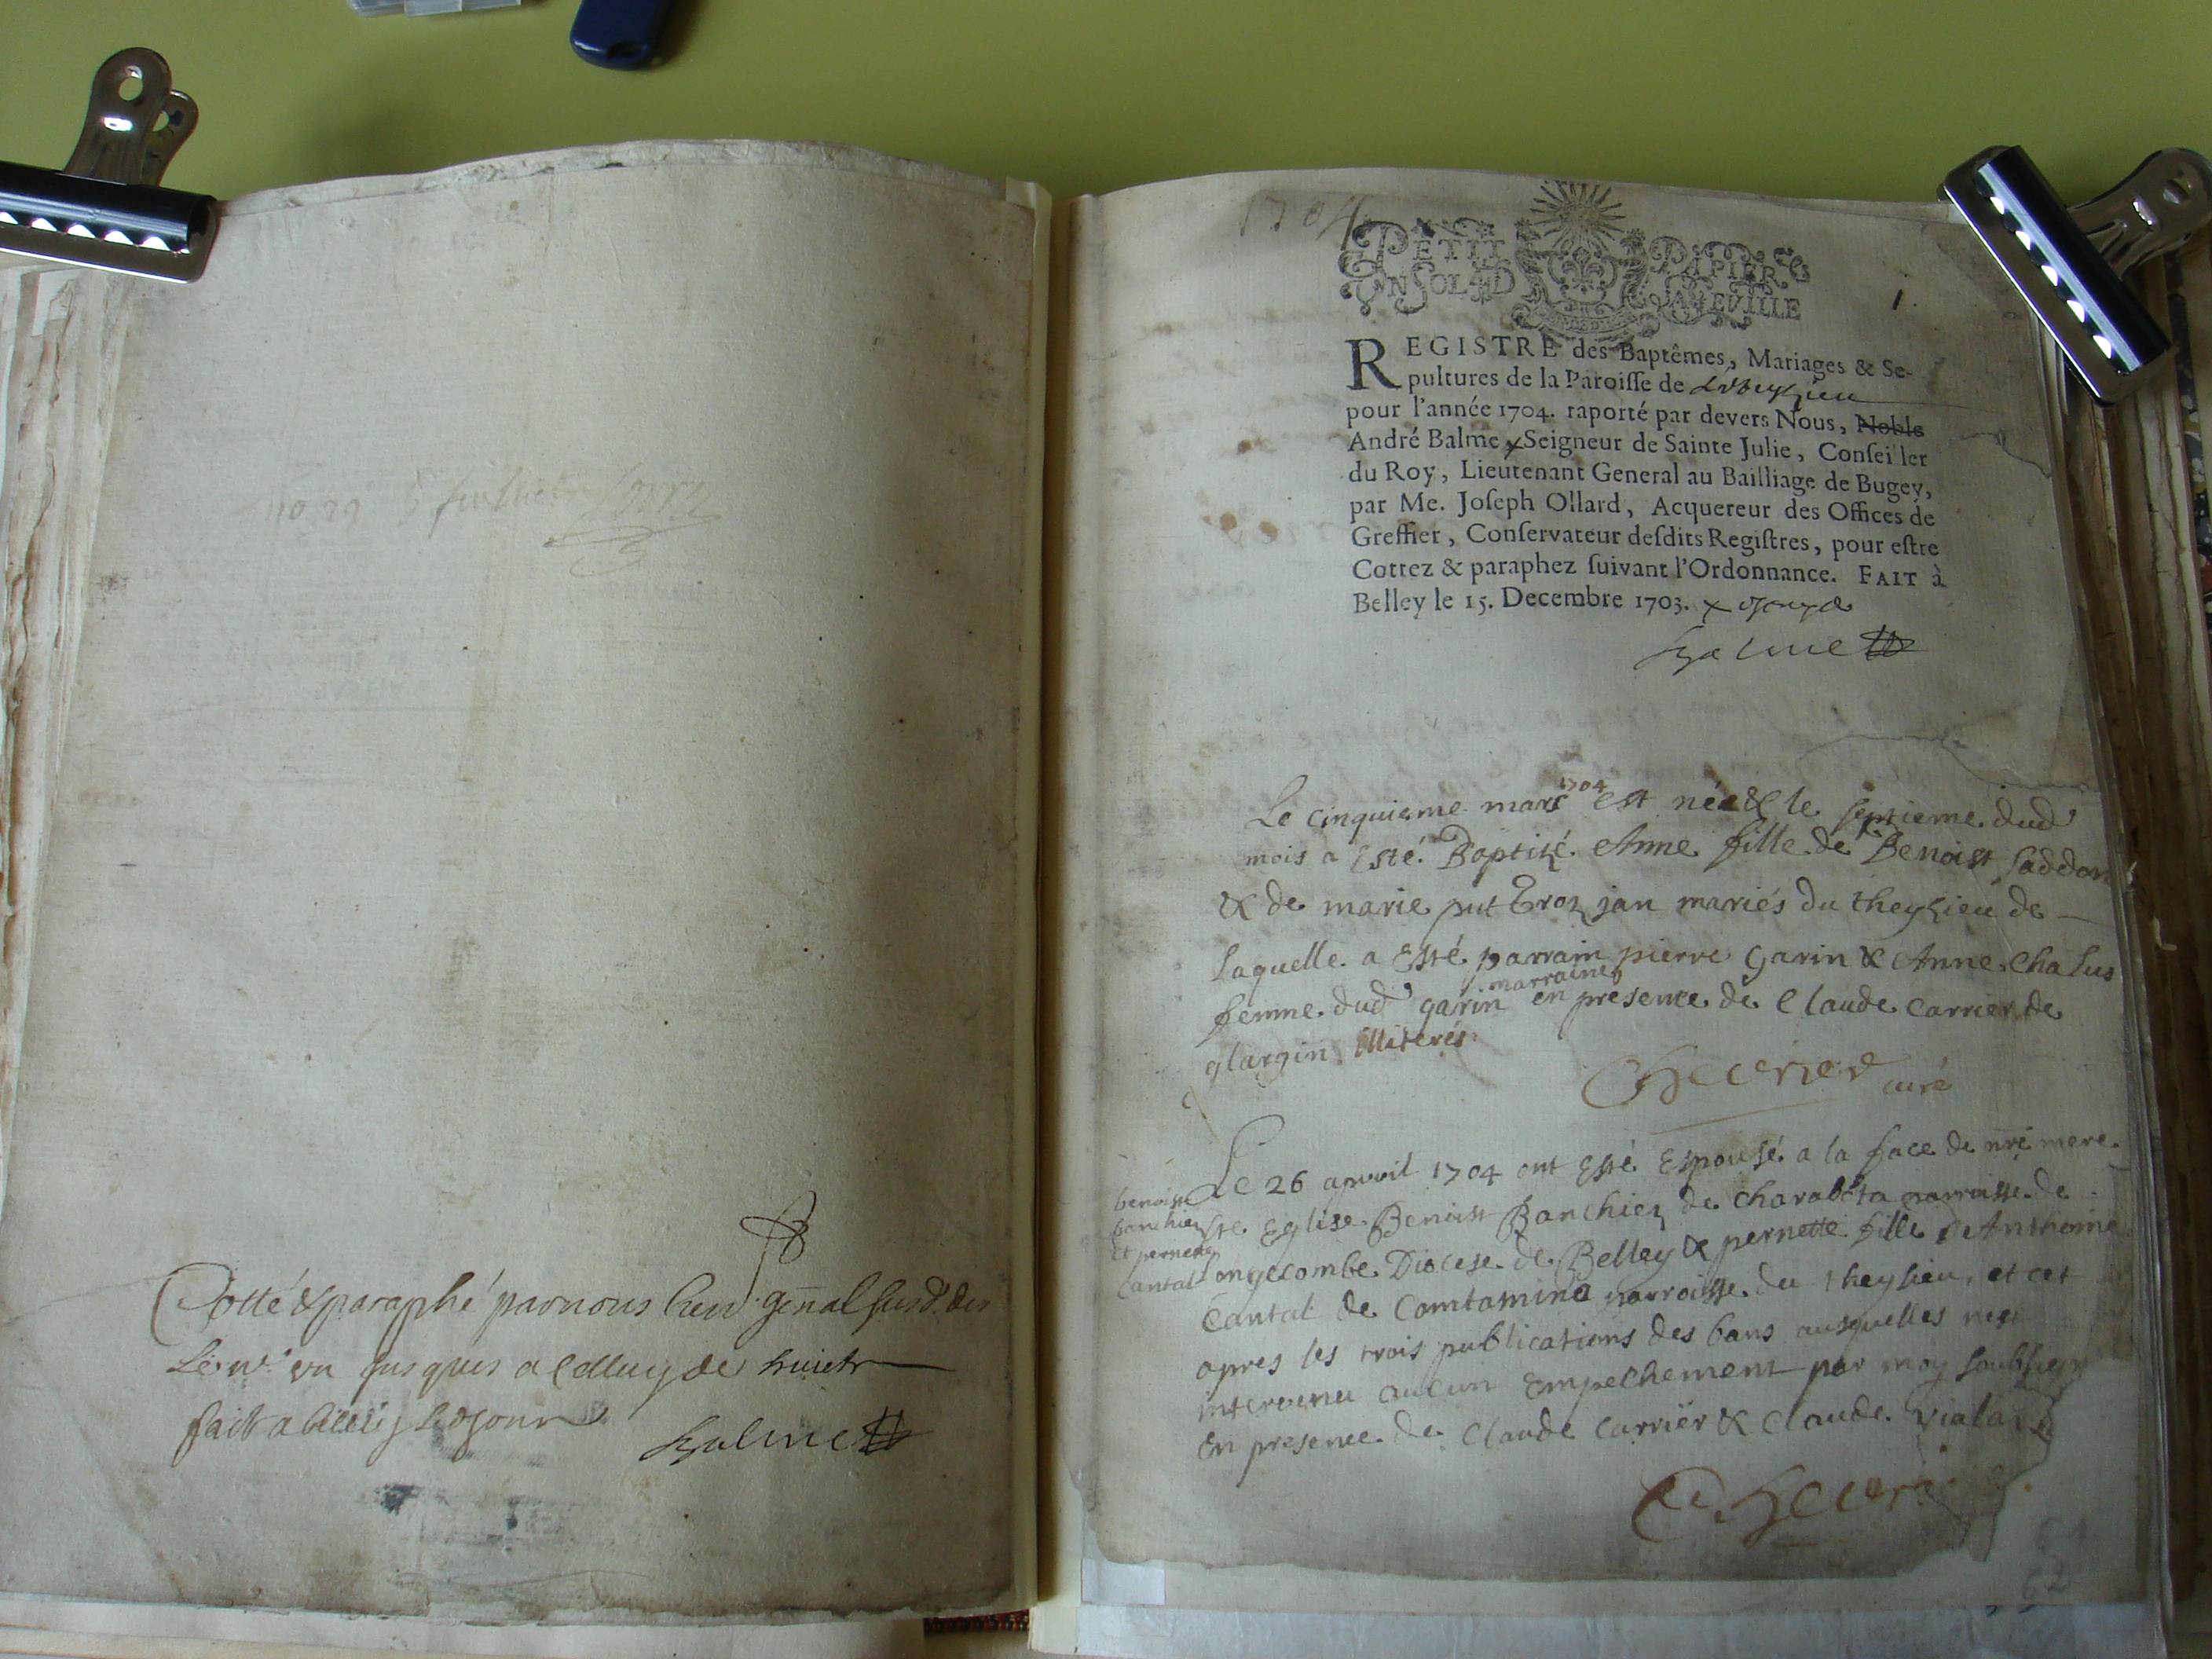 Cotté & paraphé par nous Lieut. gñal susd. des
fait a Belley led. jour
Balme
1704
PETIT PAPIER
1.
REGISTRE des Baptêmes, Mariages & Se-
pultures de la Paroisse de
pour l'année 1704. raporté par devers Nous, Noble
André Balme x Seigneur de Sainte Julie, Conseiller
du Roy, Lieutenant General au Bailliage de Bugey,
par Me. Joseph Ollard, Acquereur des Offices de
Greffier, Conservateur desdits Registres, pour estre
Cottez & paraphez suivant l'Ordonnance. FAIT à
Belley le 15. Decembre 1703. x
Balme
Le cinquieme mars 1704 est née & le septieme dud
mois a esté Baptizé Anne fille de Benoist Saddon
& de marie put mariés du theyzieu de
laquelle a Esté parrain pierre Garin & Anne Chalus
femme dud garin marraine en presence de Claude Carrier de
glargin illiterés
Checrier curé
Le 26 apvril 1704 ont esté Espousé a la face de nre mere
benoist
banchiez
et pernette
cantal
ste Eglise Benoist Banchiez de charabota parroisse de
Longecombe Diocese de Belley & pernette fille de Anthoine
Cantal de Contamine parroisse du theysieu, et cet
apres les trois publications des bans ausquelles n'est
intervenu aucun Empechement par moy soubsigné
En presence de Claude Carrier & Claude
62